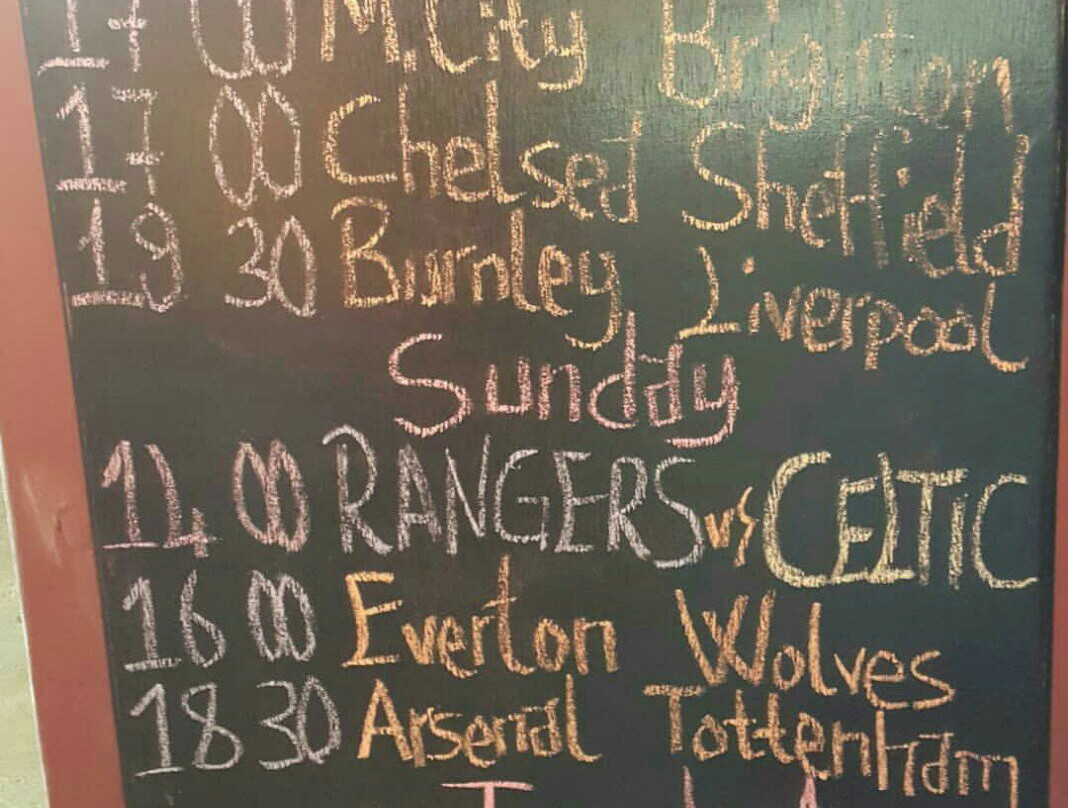 17 00 M.City Brighton
17 00 Chelsea Sheffield
19 30 Burnley Liverpool
Sunday
14 00 RANGERS vs CELTIC
16 00 Everton Wolves
18 30 Arsenal Tottenham